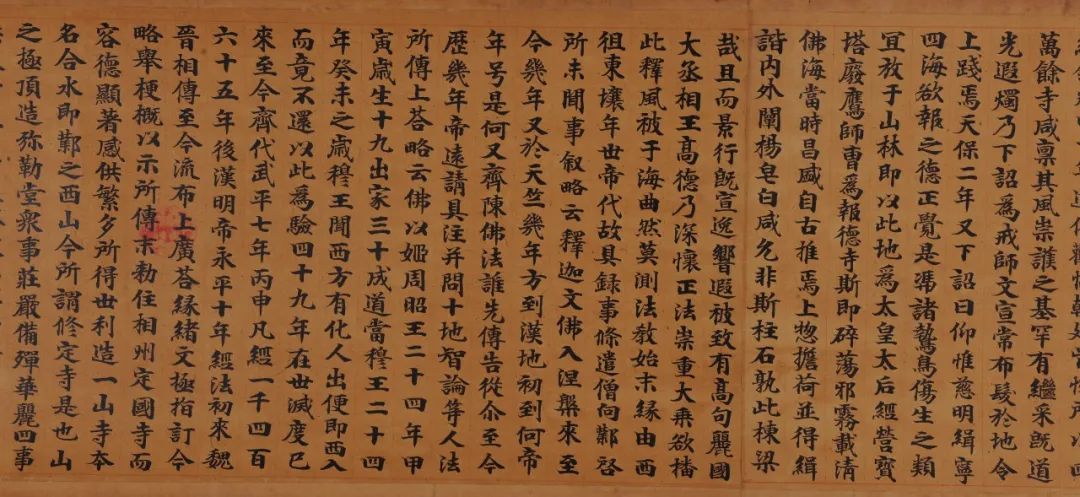 萬餘寺咸禀其風崇護之基罕有繼采既道
光遐燭乃下詔爲戒師文宣常布髮於地令
上踐焉天保二年又下詔曰仰惟慈明緝寧
四海欲報之德正覺是馮諸鷙鳥傷生之類
冝放于山林即以此地爲太皇太后經營寶
塔廢鷹師曹爲報德寺斯即碎蕩邪霧載清
佛海當時昌盛自古推焉上惣擔荷並得緝
諧内外闡楊皂白咸允非斯柱石孰此棟梁
哉且而景行既宣逸響遐被致有高句麗國
大丞相王高德乃深懷正法崇重大乗欲播
此釋風被于海曲然莫測法教始末緣由西
徂東壤年世帝代故具録事條遣僧向鄴啓
所未聞事叙略云釋迦文佛入涅槃來至
今幾年又於天竺幾年方到漢地初到何帝
年号是何又齊陳佛法誰先傳告從尒至今
歷幾年帝遠請具注并問十地智論等人法
所傳上荅略云佛以姬周昭王二十四年甲
寅歳生十九出家三十成道當穆王二十四
年癸未之歳穆王聞西方有化人出便即西入
而竟不還以此爲驗四十九年在世滅度已
來至今齊代武平七年丙申凡經一千四百
六十五年後漢明帝永平十年經法初來魏
晉相傳至今流布上廣荅緣緒文極指訂今
略舉梗概以示所傳末勑住相州定國寺而
容德顯著感供繁多所得世利造一山寺夲
名合水即鄴之西山今所謂修定寺是也山
之極頂造弥勒堂衆事莊嚴備殫華麗四事